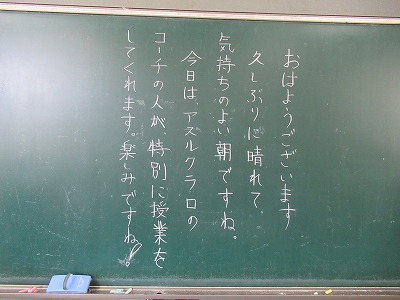 おはようございます
久しぶりに晴れて、
気持ちのよい朝ですね。
今日は、アスルクラロの
コーチの人が、特別に授業を
してくれます。楽しみですね。